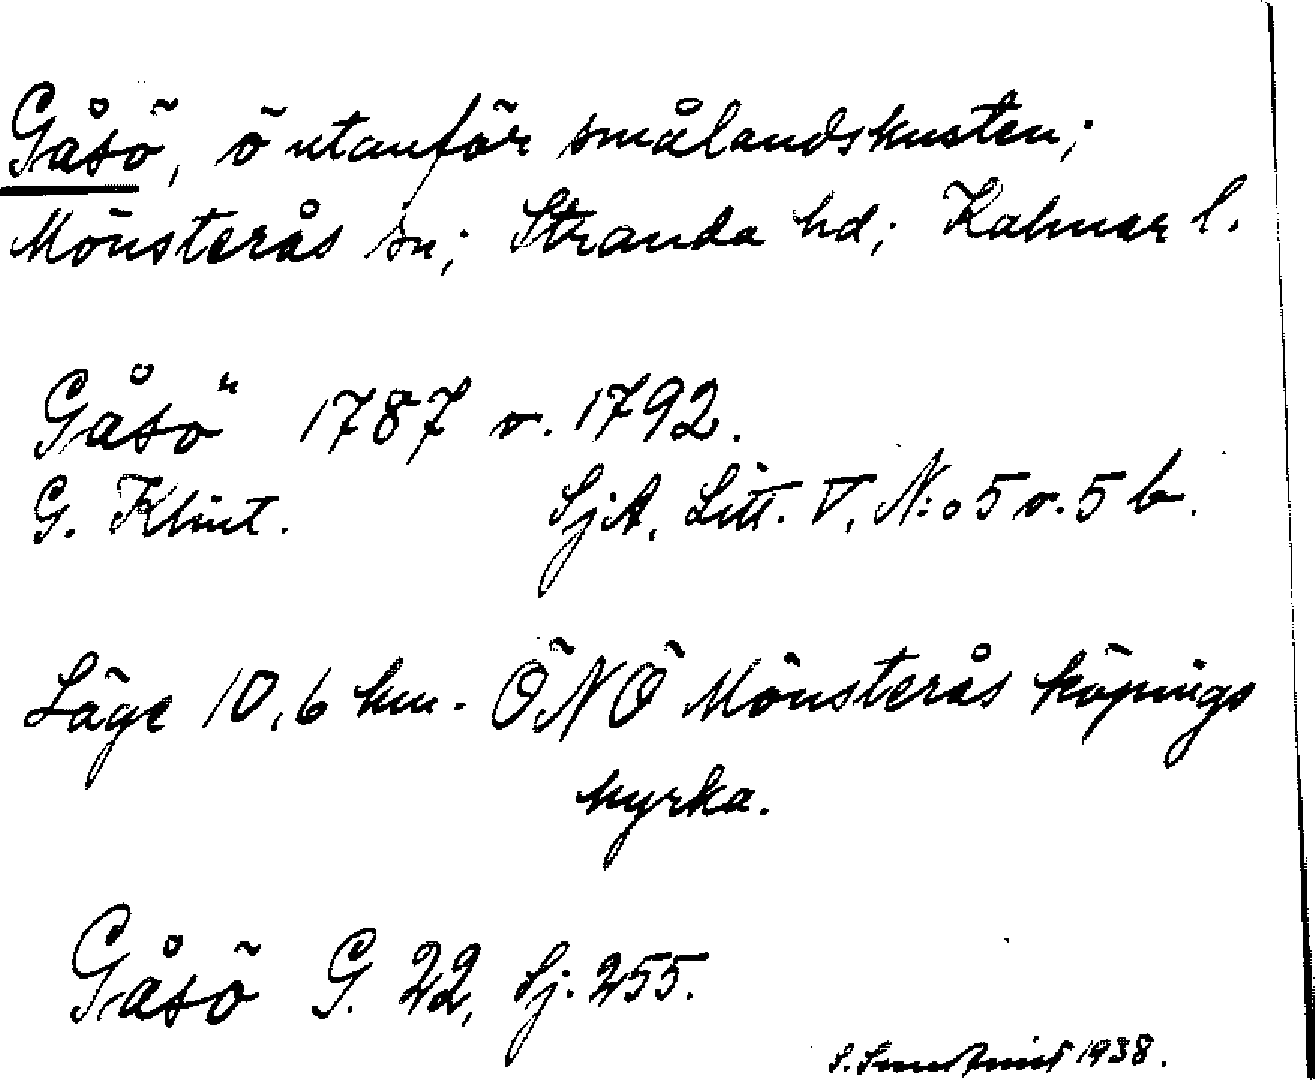 Gåsö, ö utanför smålandskusten;
Mönsterås sn; Stranda hd; Kalmar l.
Gåsö 1787 o. 1792.
G. Klint. SjA, Litt. V, N:o 5 o. 5 b.
Läge 10,6 km. ÖNÖ Mönsterås köpings
kyrka.
Gåsö G. 22, Sj. 255.
S. 1938.